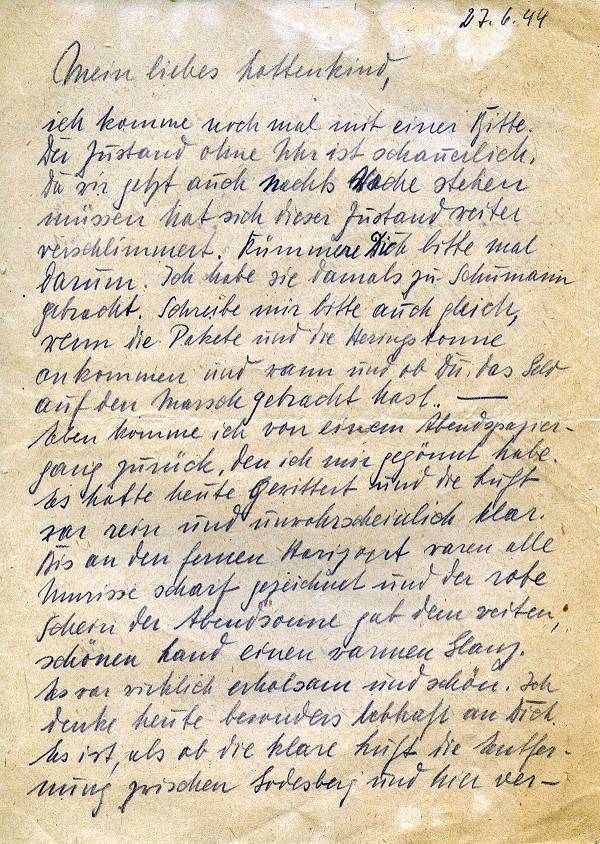 27.6.44
Mein liebes Lottenkind,
ich komme noch mal mit einer Bitte.
Der Zustand ohne Uhr ist schauerlich.
Da wir jetzt auch nachts Wache stehen
müssen hat sich dieser Zustand weiter
verschlimmert. Kümmere Dich bitte mal
darum. Ich habe sie damals zu Schumann
gebracht. Schreibe mir bitte auch gleich,
wenn die Pakete und die Heringstonne
ankommen und wann und ob Du das Geld
auf den Marsch gebracht hast. —
Eben komme ich von einem Abendspazier-
gang zurück, den ich mir gegönnt habe.
Es hatte heute gewittert und die Luft
war rein und unwahrscheinlich klar.
Bis an den fernen Horizont waren alle
Umrisse scharf gezeichnet und der rote
Schein der Abendsonne gab dem weiten,
schönen Land einen warmen Glanz.
Es war wirklich erholsam und schön. Ich
denke heute besonders lebhaft an Dich.
Es ist, als ob die klare Luft die Entfer-
nung zwischen Godesberg und hier ver-